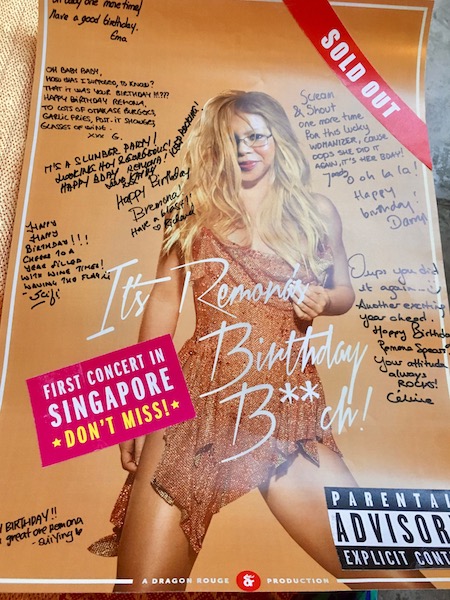 baby one more time!
Have a good birthday.
Ema
SOLD OUT
OH BABY BABY,
HOW WAS I SUPPOSED TO KNOW?
THAT IT WAS YOUR BIRTHDAY!!!???
HAPPY BIRTHDAY REMONA,
TO LOTS OF OTAKASE BURGERS,
GARLIC FRIES, POST-IT SHOWERS
GLASSES OF WINE.
XXX G.
IT'S A SLUMBER PARTY!
LOOKING HOT & GORGEOUS!
HAPPY BDAY REMONA!
Happy Birthday
Bremona!
Have a blast!!
Scream
& Shout
one more time
for this lucky
WOMANIZER, CAUSE
OOPS SHE DID IT
AGAIN, IT'S HER BDAY!
O oh la la!
Happy
birthday!
Happy
Happy
Birthday!!!
Cheers to a
year filled
with wine times!
Oups you did
it again...
Another exciting
year ahead.
Happy Birthday
Remona Spears
Your attitude
always
ROCKS!
Céline
It's Remona's
Birthday
B**ch!
FIRST CONCERT IN
SINGAPORE
★DON'T MISS!★
BIRTHDAY!!
great one Remona
- Suiying
PARENTAL
ADVISOR
EXPLICIT CONT
A DRAGON ROUGE PRODUCTION